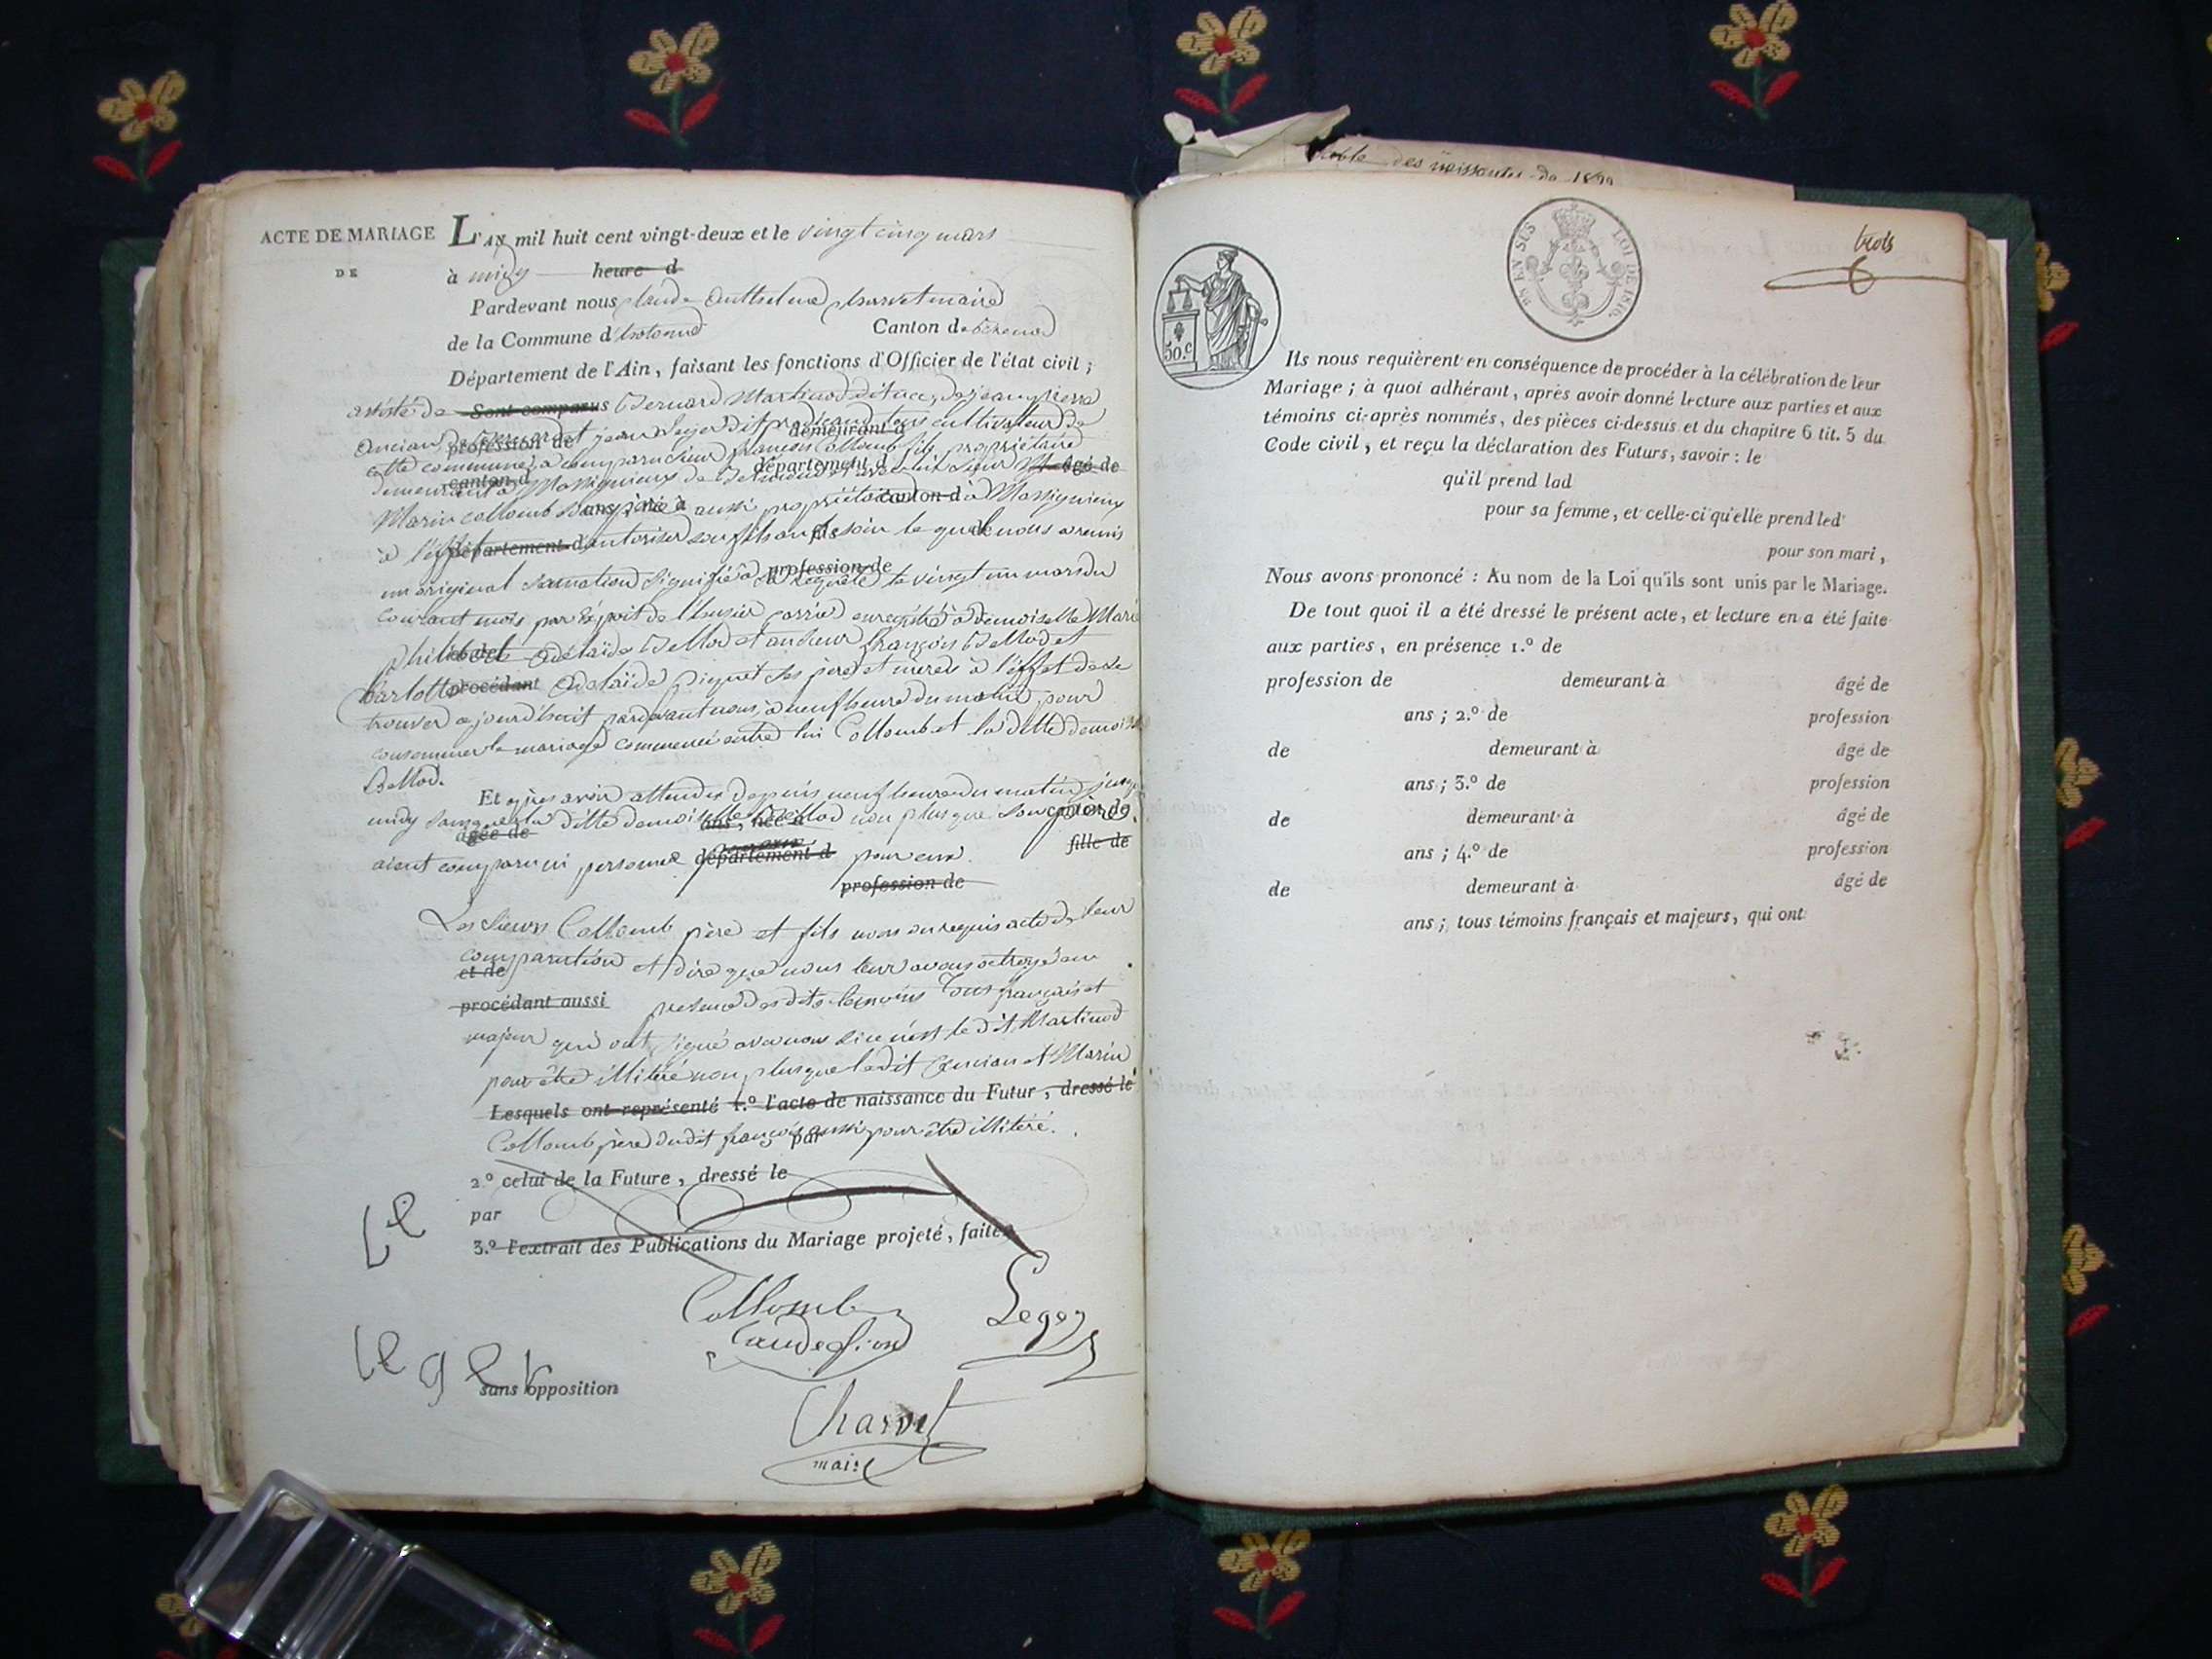 ACTE DE MARIAGE
DE
L'AN mil huit cent vingt-deux et le vingt cinq mars
à midy heure d
Pardevant nous Claude Anthelme Charvet maire
de la Commune d Canton de
Département de l'Ain, faisant les fonctions d'Officier de l'état civil;
assisté de Sont comparus Bernard Martinod
profession de demeurant à cultivateurs de
cette commune, a comparu Sieur françois Collomb fils propriétaire
demeurant à Massignieux de département d âgé de
canton d
Marin Collomb son père ans, né à aussi propriétaire canton d à Massignieux
à l'effet département d d'autoriser son fils fils le quel nous a remis
profession de
un original signifié à sa requête le vingt un mars du
courant mois par exploit de l'huissier enregistré à demoiselle Marie
philiberte et de Adélaïde Bellod et au sieur françois Bellod et
procédant Adelaïde piquet ses père et mère à l'effet de se
trouver aujourd'huit pardevant nous, à neuf heure du matin, pour
consommer le mariage commencé entre lui Collomb et la ditte demoiselle
Bellod.
Et après avoir attendu depuis neuf heure du matin
midy la ditte demoiselle Bellod non plus que canton de
âgée de ans, née à
aient comparu ni personne département d pour eux. fille de
profession de
Les Sieurs Collomb père et fils nous ont requis acte de leur
comparution et dire que nous leur avons octroyé en
et de
procédant aussi présence des dits témoins Tous français et
majeur qui ont signé avec nous le dit Martinod
pour être illitéré non plus que ledit ancian et Marin
Lesquels ont représenté 1.º l'acte de naissance du Futur, dressé le
Collomb père dudit françois aussi pour être illitéré.
par
2.º celui de la Future, dressé le
par
3.º l'extrait des Publications du Mariage projeté, faites
Le
Collomb
Leger
Leger
sans opposition
Charvet
maire
table des naissantes de
EN SUS
LOI DE 1816.
trois
50.c
Ils nous requièrent en conséquence de procéder à la célébration de leur
Mariage; à quoi adhérant, après avoir donné lecture aux parties et aux
témoins ci-après nommés, des pièces ci-dessus et du chapitre 6 tit. 5 du
Code civil, et reçu la déclaration des Futurs, savoir: le
qu'il prend lad
pour sa femme, et celle-ci qu'elle prend led
pour son mari,
Nous avons prononcé: Au nom de la Loi qu'ils sont unis par le Mariage.
De tout quoi il a été dressé le présent acte, et lecture en a été faite
aux parties, en présence 1.º de
profession de demeurant à âgé de
ans; 2.º de profession
de demeurant à âgé de
ans; 3.º de profession
de demeurant à âgé de
ans; 4.º de profession
de demeurant à âgé de
ans; tous témoins français et majeurs, qui ont